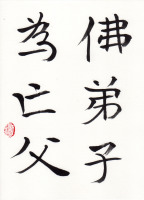 佛弟子
為亡父